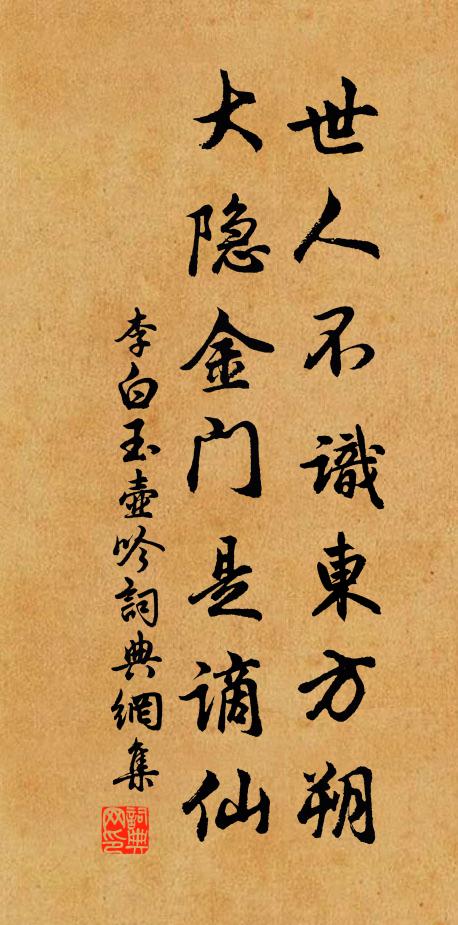 世人不識東方朔
大隐金门是谪仙
李白玉壺吟詞典網集
詞典网印